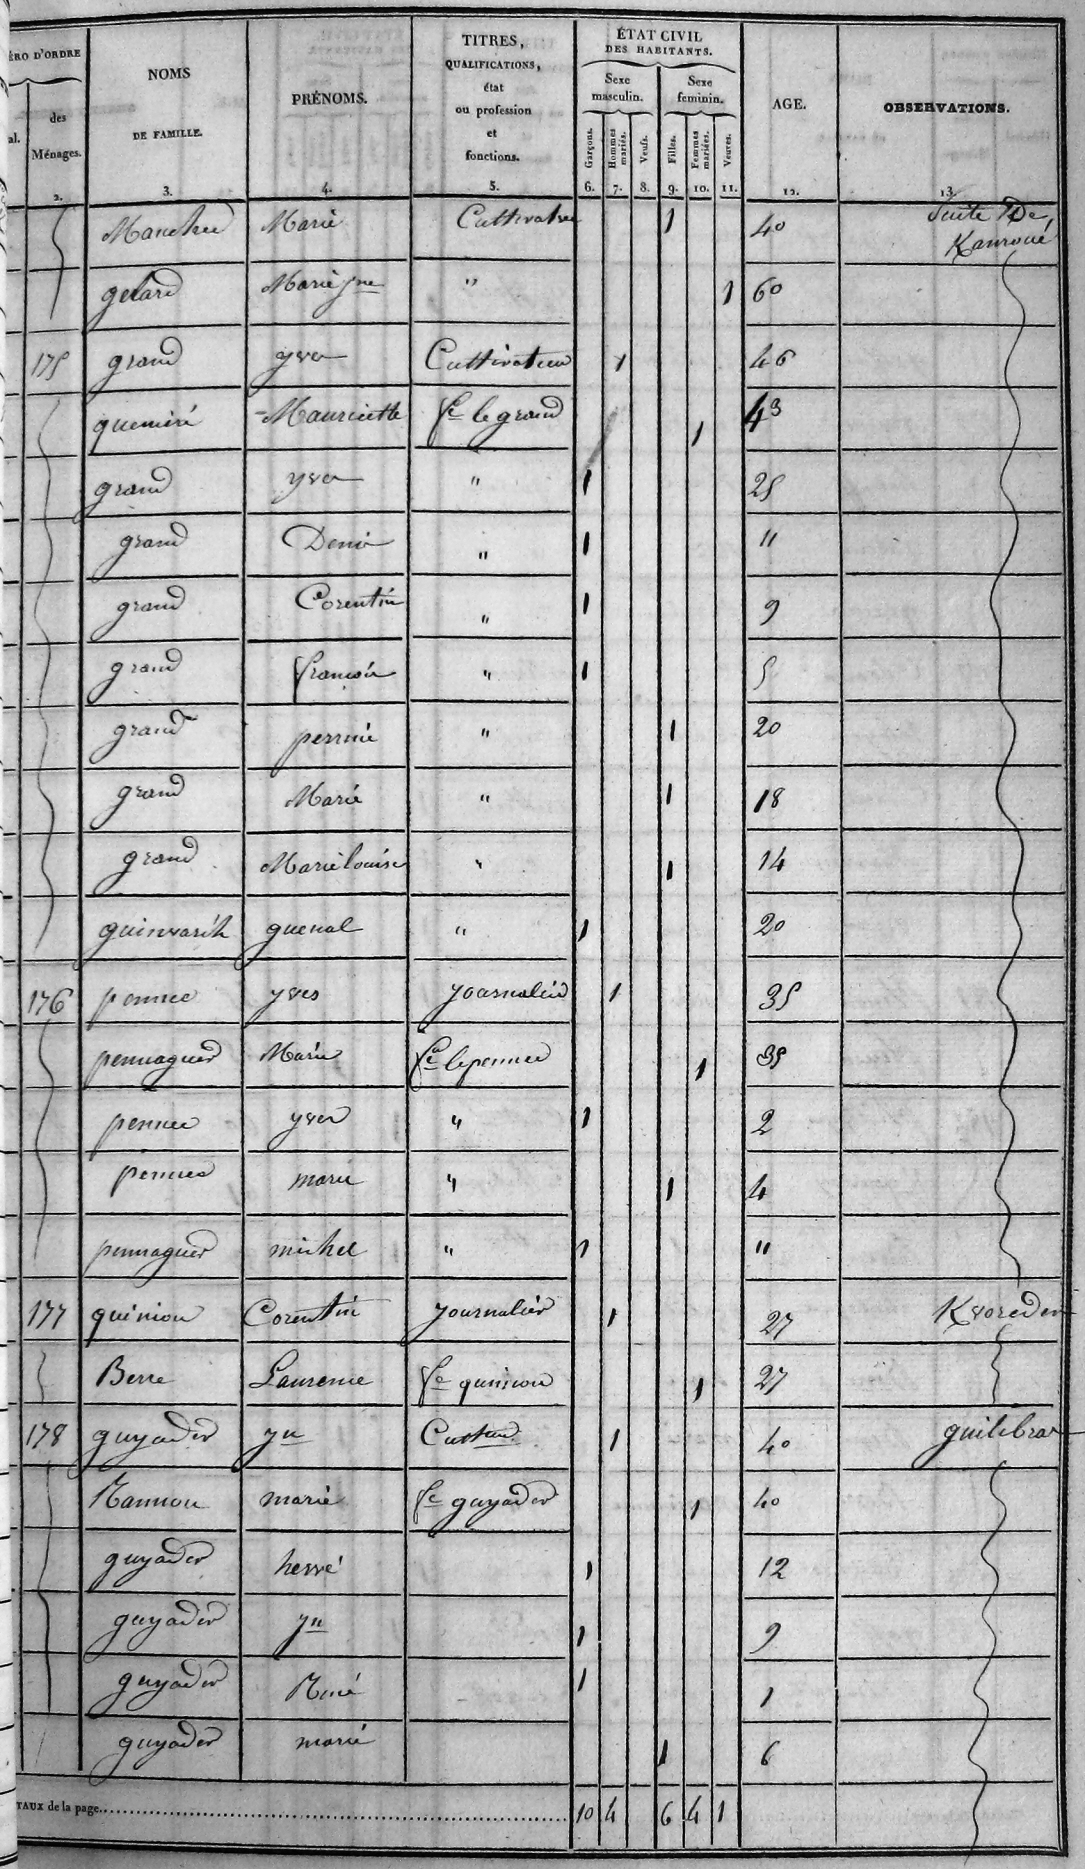 ÉRO D'ORDRE
al.
des
Ménages.
2.
NOMS
DE FAMILLE.
3.
PRÉNOMS.
4.
TITRES,
QUALIFICATIONS,
état
ou profession
et
fonctions.
5.
ÉTAT CIVIL
DES HABITANTS.
Sexe
masculin.
Sexe
feminin.
Garçons.
Hommes
mariés.
Veufs.
Filles.
Femmes
mariées.
Veuves.
6. 7. 8. 9. 10. 11.
AGE.
12.
OBSERVATIONS.
13.
Marie 1 40 Suite De
Kanroué
gelard Marie jne " 1 60
175 grand yves Cultivateur 1 46
quemeré Mauricette fe le grand 1 43
grand yves " 1 25
grand Denis " 1 11
grand Corentin " 1 9
grand françois " 1 5
grand perrine " 1 20
grand Marie " 1 18
grand Marie louise " 1 14
guinvarch guenal " 1 20
176 pennec yves journalier 1 35
pennaguer Marie fe le pennec 1 35
pennec yves " 1 2
pennec marie " 1 4
pennaguer michel " 1 11
177 quiniou Corentin journalier 1 27 Kvoreden
Berre Laurence fe quiniou 1 27
178 guyader jn Culteur 1 40 guilebras
Nannou marie fe guyader 1 40
guyader hervé 1 12
guyader jn 1 9
guyader René 1 1
guyader marie 1 6
TAUX de la page 10 4 6 4 1